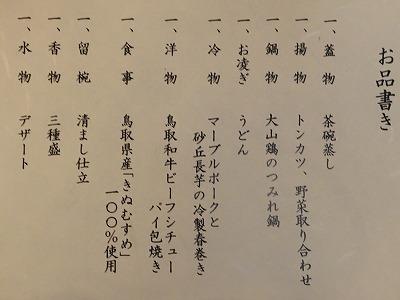 お品書き
一、蓋物 茶碗蒸し
一、揚物 トンカツ、野菜取り合わせ
一、鍋物 大山鶏のつみれ鍋
一、お凌ぎ うどん
一、冷物 マーブルポークと
砂丘長芋の冷製春巻き
一、洋物 鳥取和牛ビーフシチュー
パイ包焼き
一、食事 鳥取県産「きぬむすめ」
一〇〇%使用
一、留椀 清まし仕立
一、香物 三種盛
一、水物 デザート